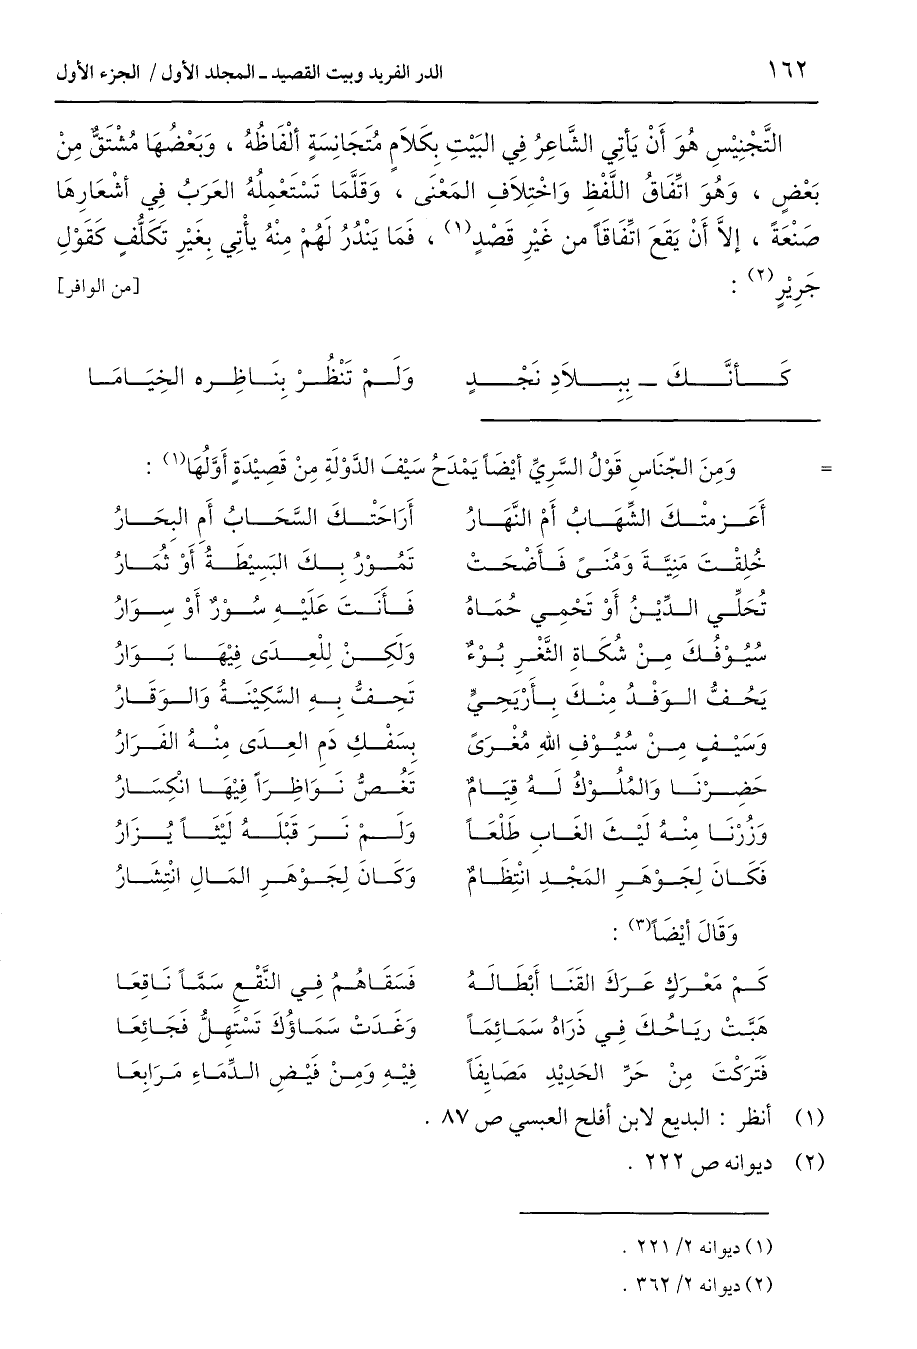 ١٦٢ الدر الفريد وبيت القصيد ـ المجلد الأول / الجزء الأول
التَّجْنِيْسِ هُوَ أَنْ يَأتِي الشَّاعِرُ فِي البَيْتِ بِكَلاَمٍ مُتَجَانِسَةٍ أَلْفَاظُهُ ، وَبَعْضُهَا مُشْتَقٌّ مِنْ
بَعْضٍ ، وَهُوَ اتِّفَاقُ اللَّفْظِ وَاخْتِلاَفِ المَعْنَى ، وَقَلَّمَا تَسْتَعْمِلُهُ العَرَبُ فِي أَشْعَارِهَا
صَنْعَةً ، إلاَّ أَنْ يَقَعَ اتِّفَاقاً من غَيْرِ قَصْدٍ(١) ، فَمَا يَنْدُرُ لَهُمْ مِنْهُ يأْتِي بِغَيْرِ تَكَلُّفٍ كَقَوْلِ
جَرِيْرٍ(٢) : [من الوافر]
كَـأَنَّـكَ ـ بِبِـلاَدِ نَجْـدٍ وَلَـمْ تَنْظُـرْ بِنَـاظِـرِه الخِيَـامَـا
= وَمِنَ الجّنَاسِ قَوْلُ السَّرِيِّ أَيْضَاً يَمْدَحُ سَيْفَ الدَّوْلَةِ مِنْ قَصِيْدَةٍ أَوَّلُهَا(١) :
أَعَـزمتْـكَ الشِّهَـابُ أَمْ النَّهَـارُ أَرَاحَتُـكَ السَّحَـابُ أَمِ البِحَـارُ
خُلِقْـتَ مَنِيَّـةً وَمُنَـىً فَـأَضْحَـتْ تَمُـوْرُ بِـكَ البَسِيْطَـةُ أَوْ تُمَـارُ
تُحَلِّـي الـدِّيْـنُ أَوْ تَحْمِـي حُمَـاهُ فَـأَنْـتَ عَلَيْـهِ سُـوْرٌ أَوْ سِـوَارُ
سُيُـوْفُـكَ مِـنْ شُكَـاةِ الثَّغْـرِ بُـرْءٌ وَلَكِـنْ لِلْعِـدَى فِيْهَـا بَـوَارُ
يَحُـفُّ الـوَفْـدُ مِنْـكَ بِـأَرْيَحِـيٍّ تَحِـفُّ بِـهِ السَّكِيْنَـةُ وَالـوَقَـارُ
وَسَيْـفٍ مِـنْ سُيُـوْفِ اللهِ مُغْـرَىً بِسَفْـكِ دَمِ العِـدَى مِنْـهُ الفِـرَارُ
حَضَـرْنَـا وَالمُلُـوْكُ لَـهُ قِيَـامٌ تَغُـضُّ نَـوَاظِـرَاً فِيْهَـا انْكِسَـارُ
وَزُرْنَـا مِنْـهُ لَيْـثَ الغَـابِ طَلْعَـاً وَلَـمْ نَـرَ قَبْلَـهُ لَيْثَـاً يُـزَارُ
فَكَـانَ لِجَـوْهَـرِ المَجْـدِ انْتِظَـامٌ وَكَـانَ لِجَـوْهَـرِ المَـالِ انْتِثَـارُ
وَقَالَ أَيْضَاً(٣) :
كَـمْ مَعْـرَكٍ عَـرَكَ القَنَـا أَبْطَـالَـهُ فَسَقَـاهُـمُ فِـي النَّقْـعِ سَمَّـاً نَـاقِعَـا
هَبَّـتْ رِيَـاحُـكَ فِـي ذَرَاهُ سَمَـائِمَـاً وَغَـدَتْ سَمَـاؤُكَ تَسْتَهِـلُّ فَجَـائِعَـا
فَتَرَكْتَ مِنْ حَرِّ الحَدِيْدِ مَصَايِفَاً فِيْـهِ وَمِـنْ فَيْـضِ الدِّمَـاءِ مَـرَابِعَـا
(١) أنظر : البديع لابن أفلح العبسي ص ٨٧ .
(٢) ديوانه ص ٢٢٢ .
(١) ديوانه ٢/ ٢٢١ .
(٢) ديوانه ٢/ ٣٦٢ .